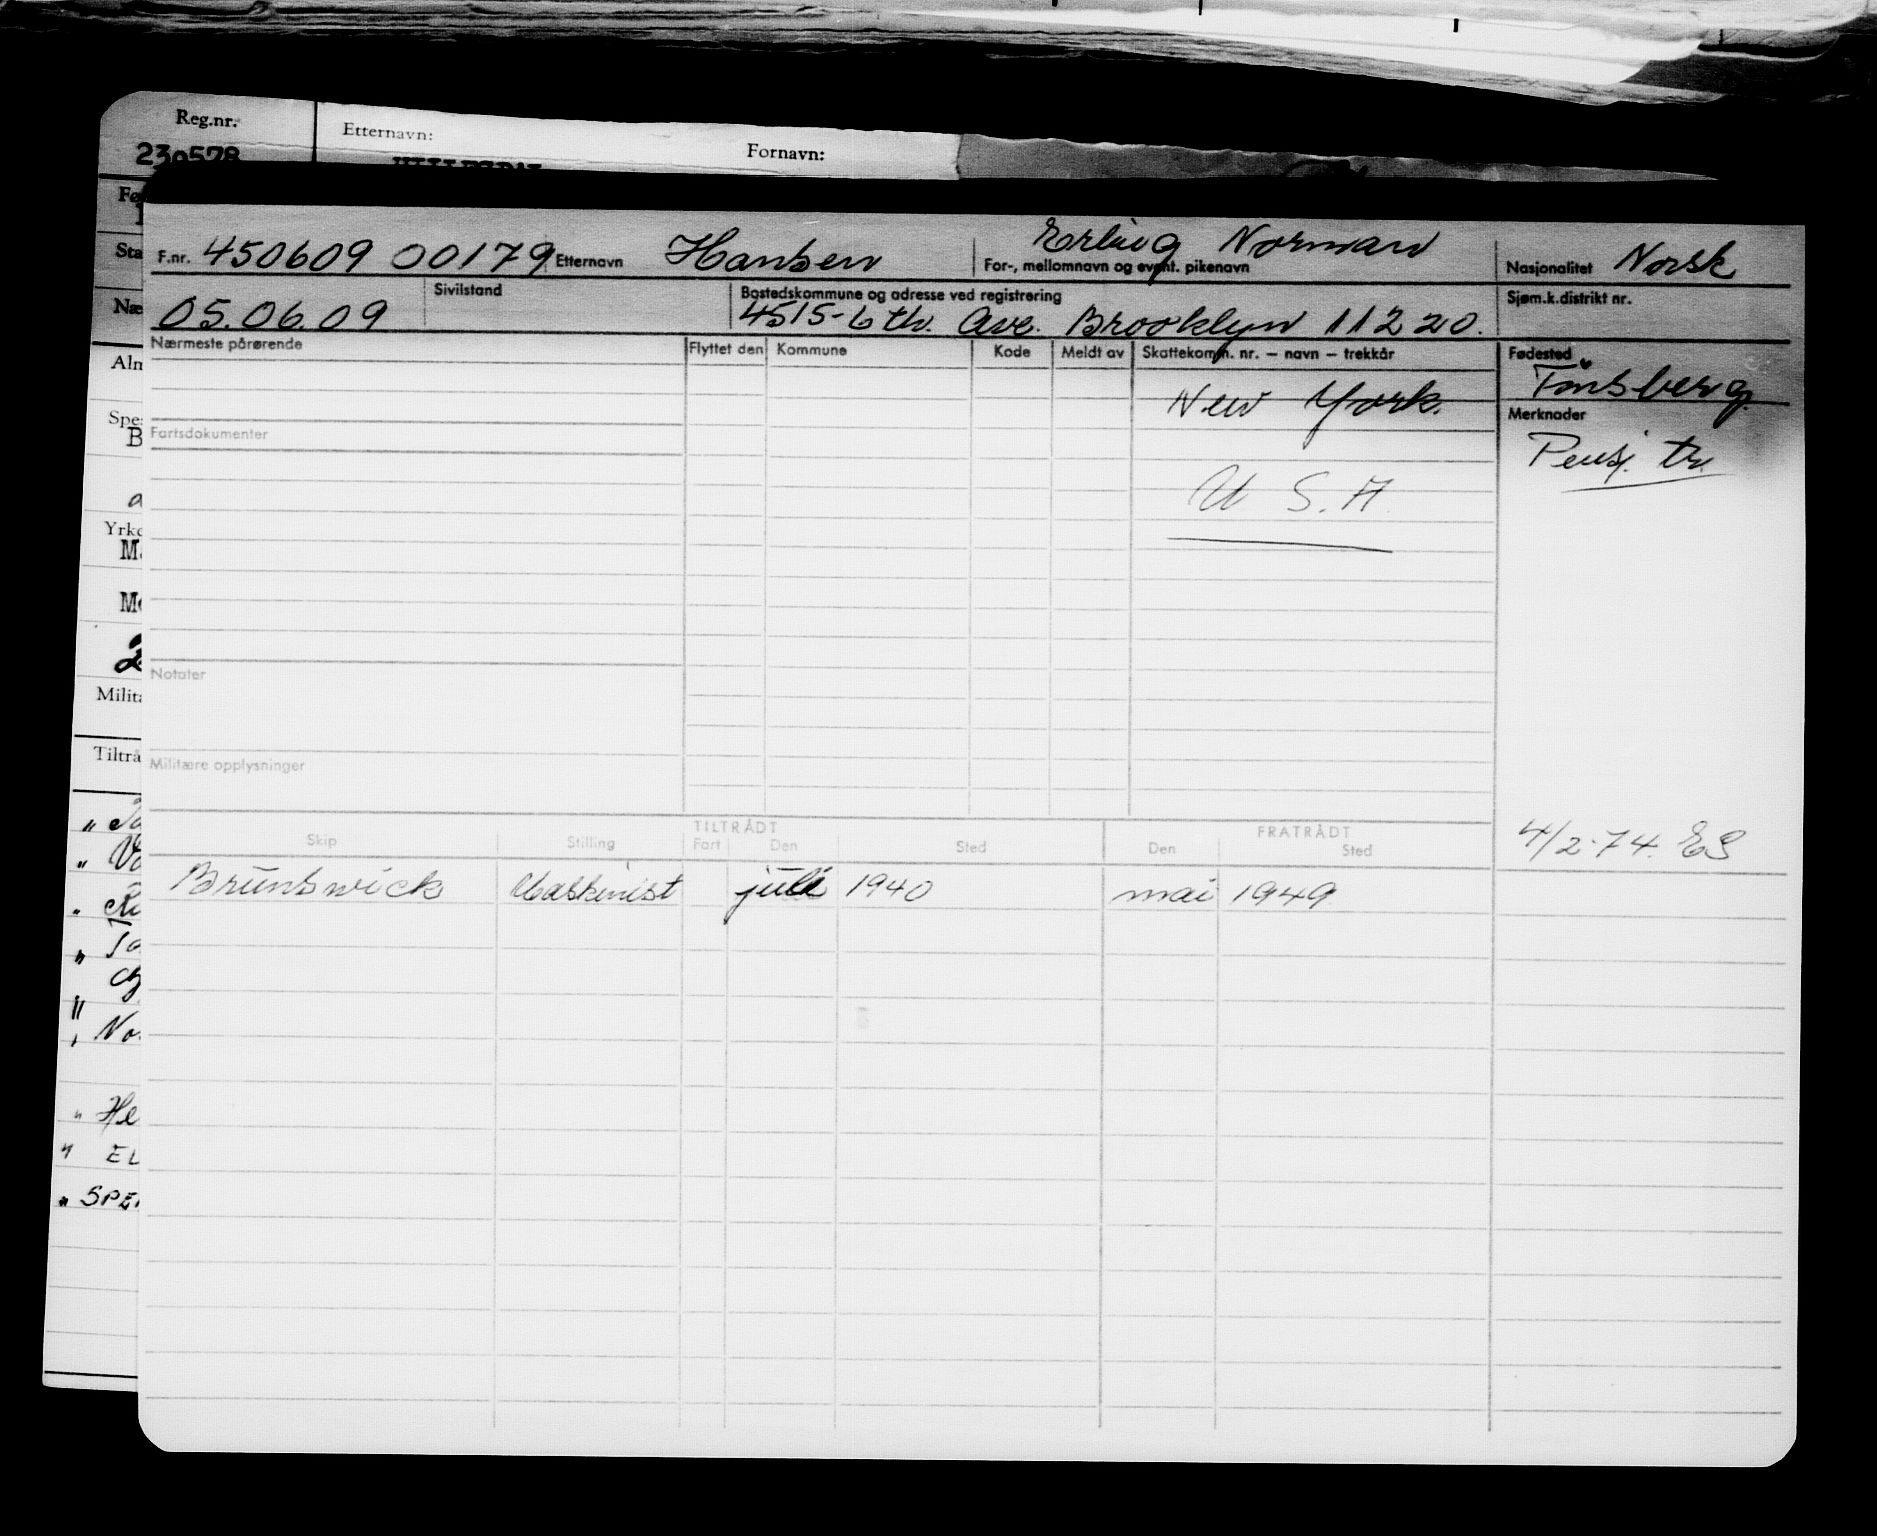 Reg.nr.
Etternavn:
Fornavn:
230578
Erling Norman
F.nr. 450609 00179 Etternavn Hansen For-, mellomnavn og event. pikenavn Nasjonalitet Norsk
Sivilstand Bostedskommune og adresse ved registrering Sjøm.k.distrikt nr.
05.06.09 4515-6th. Ave. Brooklyn 11220.
Nærmeste pårørende Flyttet den Kommune Kode Meldt av Skattekomm. nr. – navn – trekkår Fødested
Tönsberg.
New York. Merknader
Fartsdokumenter Pensj. tr.
U S.A
Notater
Militære opplysninger
TILTRÅDT FRATRÅDT 4/2-74. ES
Skip Stilling Fart Den Sted Den Sted
Brunswick Maskinist juli 1940 mai 1949
Yrke
Milit
Tiltrå
" No
" He
" EL
" SPE